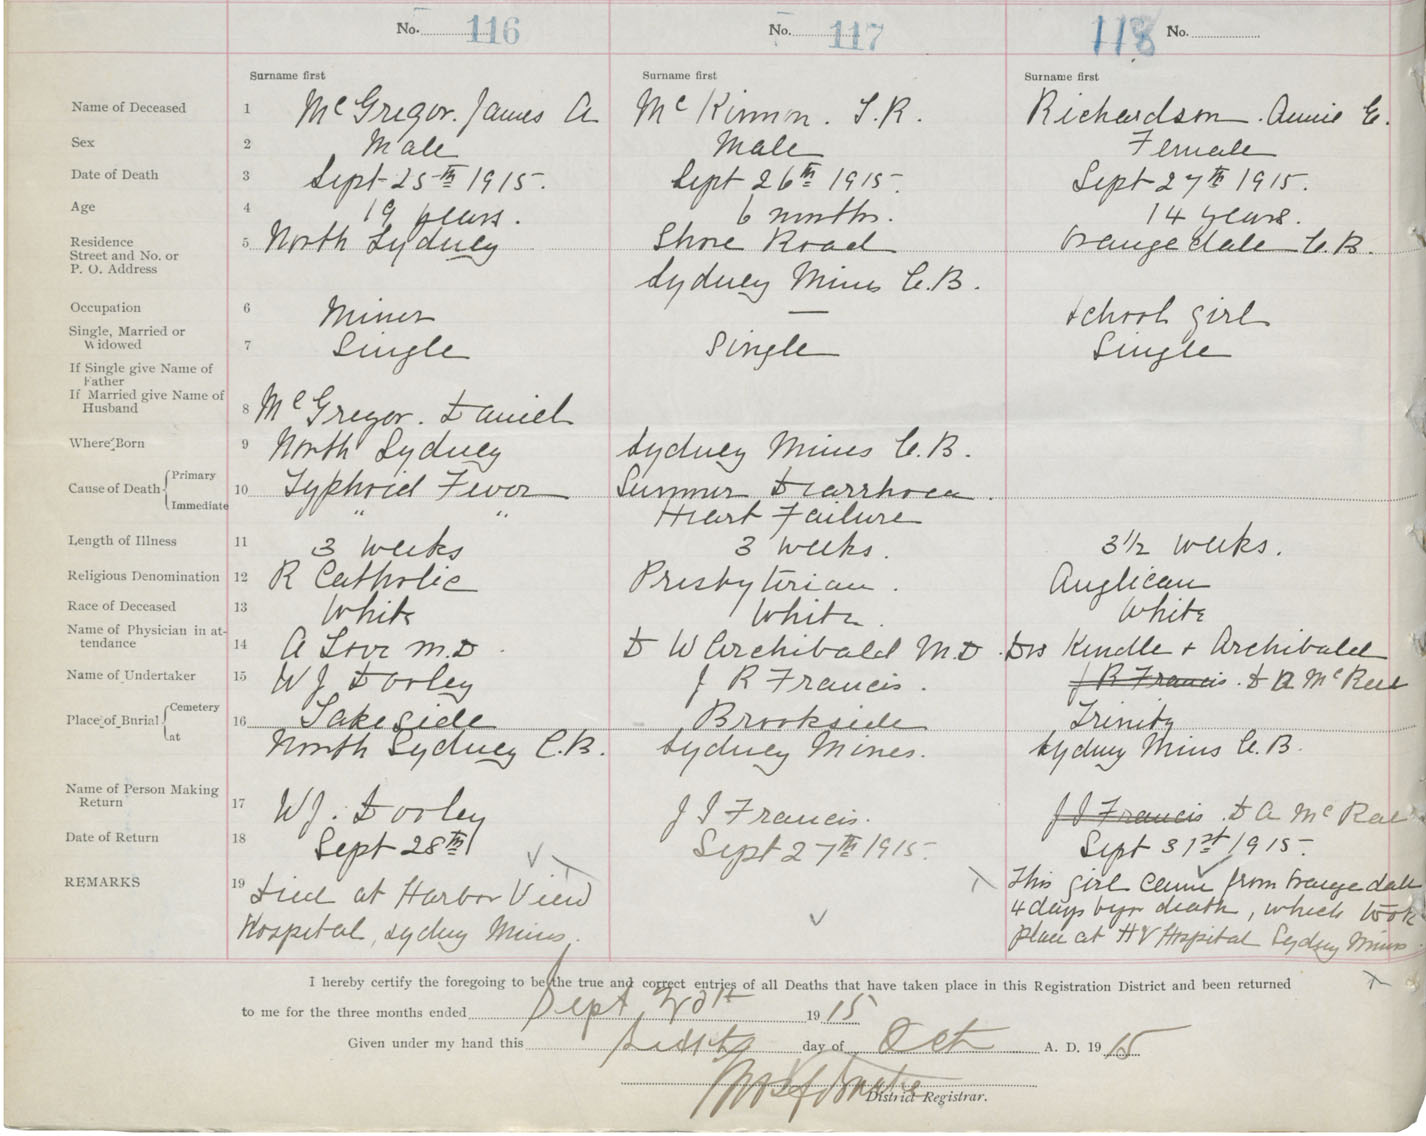 No. 116 No. 117 118 No.
Surname first Surname first Surname first
Name of Deceased 1 McGregor. James A McKinnon. J.R. Richardson. Annie E.
Sex 2 Male Male Female
Date of Death 3 Sept 25th 1915. Sept 26th 1915. Sept 27th 1915.
Age 4 19 years. 6 months. 14 years.
Residence 5 North Sydney Shore Road Orangedale C.B.
Street and No. or
P. O. Address Sydney Mines C.B.
Occupation 6 Miner — School girl
Single, Married or
Widowed 7 Single Single Single
If Single give Name of
Father
If Married give Name of
Husband 8 McGregor. Daniel
Where Born 9 North Sydney Sydney Mines C.B.
Cause of Death Primary
10 Typhoid Fever Summer Diarrhoea.
Immediate " " Heart Failure
Length of Illness 11 3 weeks 3 weeks. 3 1/2 weeks.
Religious Denomination 12 R Catholic Presbyterian. Anglican
Race of Deceased 13 White White. White
Name of Physician in at-
tendance 14 A Love M.D. D W Archibald M.D. Drs Kendle + Archibald
Name of Undertaker 15 WJ Dooley J R Francis. J R Francis. D A McRae
Place of Burial Cemetery
16 Lakeside Brookside Trinity
at North Sydney C.B. Sydney Mines. Sydney Mines C.B.
Name of Person Making
Return 17 WJ. Dooley J J Francis. J J Francis. D A McRae
Date of Return 18 Sept 28th Sept 27th 1915. Sept 31st 1915.
REMARKS 19 Died at Harbor View This girl came from Orangedale
4 days before death, which took
Hospital, Sydney Mines. place at H V Hospital Sydney Mines.
I hereby certify the foregoing to be the true and correct entries of all Deaths that have taken place in this Registration District and been returned
to me for the three months ended Sept 1915
Given under my hand this day of Oct A. D. 1915
District Registrar.